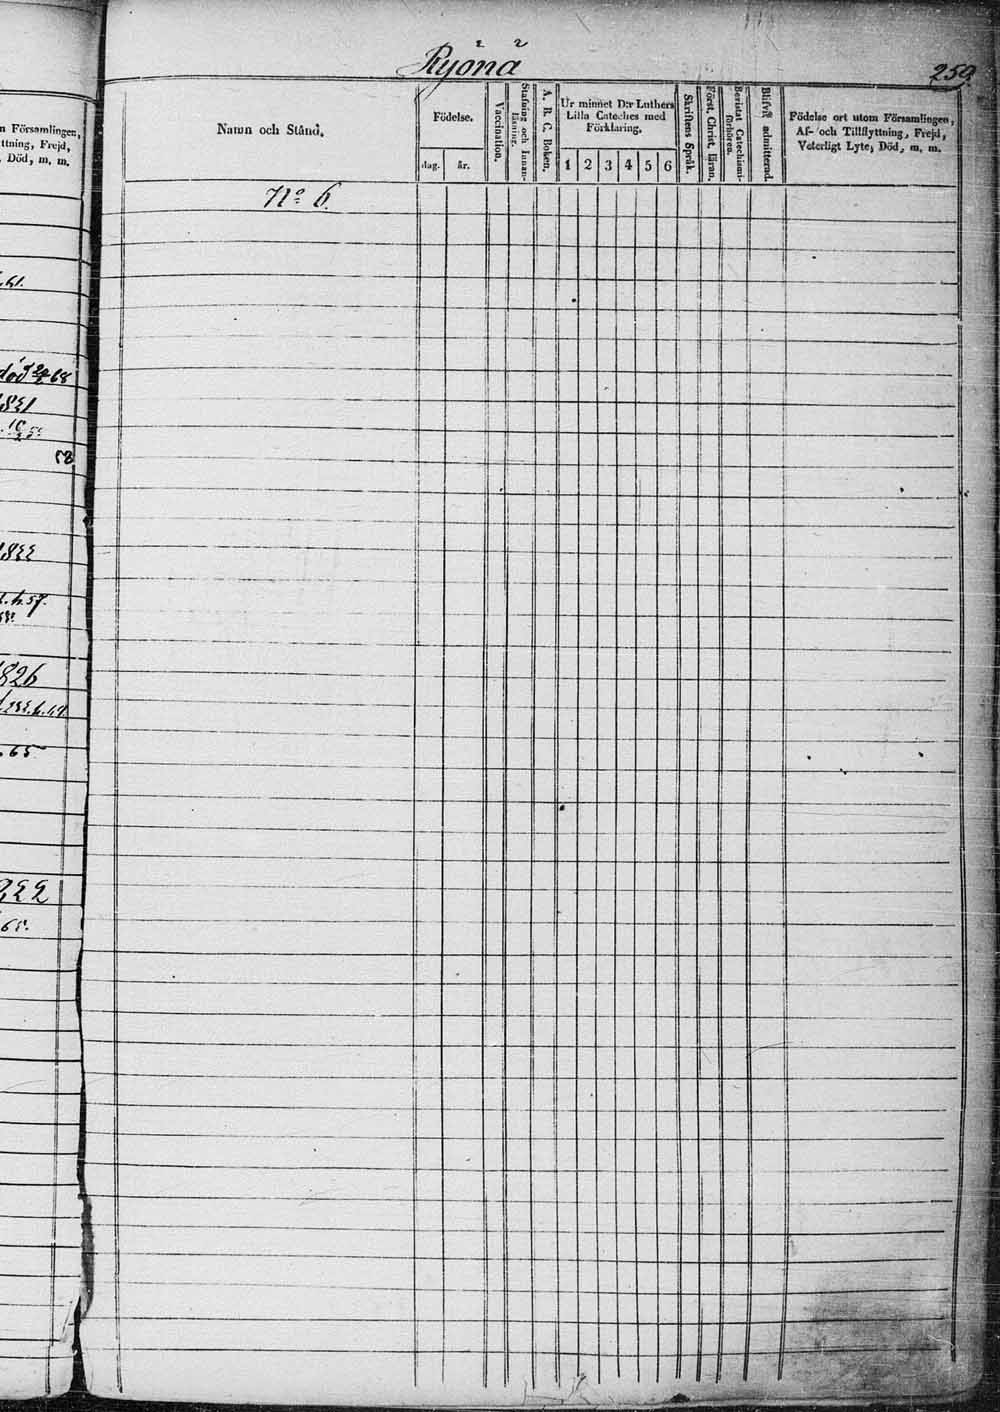 Ryönä
259.
n Församlingen,
ttning, Frejd,
, Död, m. m.
.61.
död 68
1831
58
1855
.57.
1826
.65
.65.
Namn och Stånd.
Födelse.
dag.
år.
Vaccination.
Stafning och Innan-
läsning.
A. B. C. Boken.
Ur minnet D:r Luthers
Lilla Cateches med
Förklaring.
1 2 3 4 5 6
Skriftens Språk.
Först. Christ. läran.
Bevistat Catechismi-
förhören.
Blifvit admitterad.
Födelse ort utom Församlingen,
Af- och Tillflyttning, Frejd,
Veterligt Lyte, Död, m. m.
No 6.